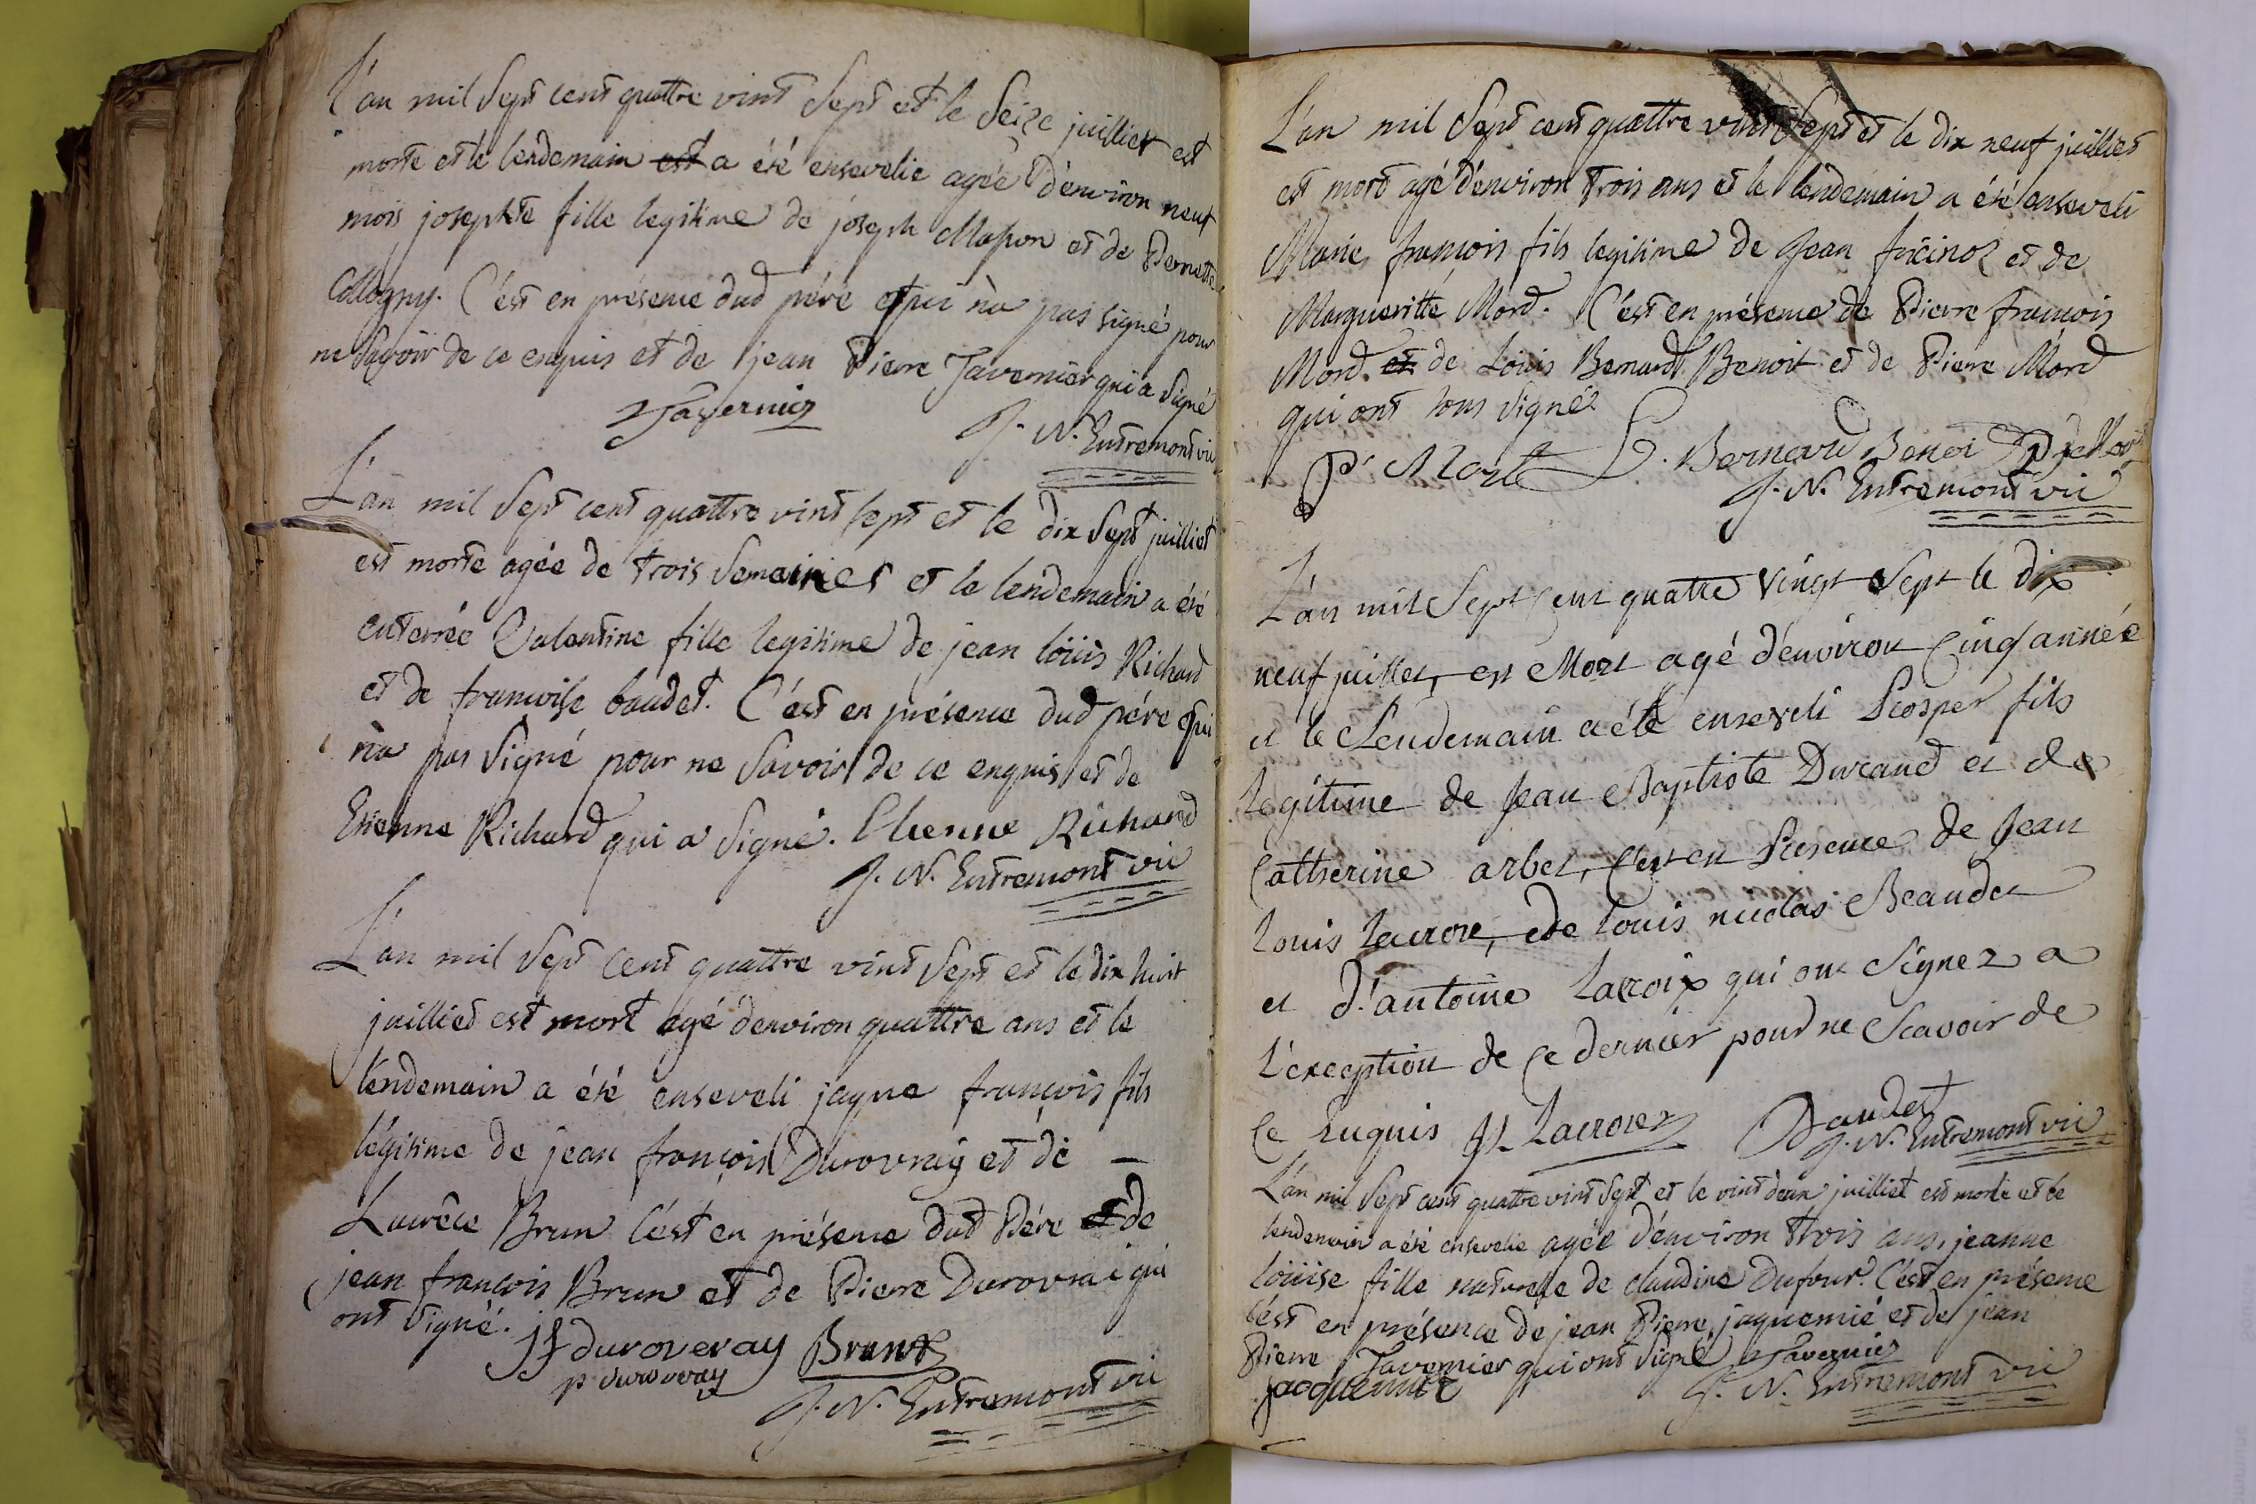 L'an mil sept cent quattre vint sept et le seize juilliet est
morte et le lendemain est a été ensevelie agée d'environ neuf
mois josephte fille legitime de joseph Masson et de Pernette
Collogny. C'est en présence dud père et qui n'a pas signé pour
ne savoir de ce enquis et de jean Pierre Tavernier qui a signé
Tavernier
J. N. Entremont vic
L'an mil sept cent quattre vint sept et le dix sept juilliet
est morte agée de trois semaines et le lendemain a été
enterrée Valentine fille legitime de jean loüis Richard
et de francoise baudet. C'est en présence dud père qui
n'a pas signé pour ne savoir de ce enquis et de
Etienne Richard qui a signé. Etienne Richard
J. N. Entremont vic
L'an mil sept cent quattre vint sept et le dix huit
juilliet est mort agé d'environ quattre ans et le
lendemain a été enseveli jaque françois fils
légitime de jean françois Durovray et de
Lucrêce Brun C'est en présence dud Père et de
jean françois Brun et de Pierre Durovrai qui
ont signé.
jf duroveray Brun
p duroveray
J. N. Entremont vic
L'an mil sept cent quattre vint sept et le dix neuf juilliet
est mort agé d'environ trois ans et le lendemain a été enseveli
Marie françois fils legitime de Jean et de
Margueritte Mord. C'est en présence de Pierre françois
Mord et de Loüis Bernard Benoit et de Pierre Mord
qui ont tous signé
P. Mort L. Bernard Benoi
J. N. Entremont vic
L'an mil sept cent quatre vingt sept le dix
neuf juillet, est Mort agé d'environ Cinq année
et le Lendemain a été enseveli Prosper fils
legitime de Jean Baptiste Durand et de
Catherine arbet, C'est en Présence de Jean
Louis Lacroix, de Louis nicolas Beaudet
et d'antoine Lacroix qui ont signez a
l'exception de ce dernier pour ne scavoir de
ce Enquis JL Lacroix Baudet
J. N. Entremont vic
L'an mil sept cent quattre vint sept et le vint deux juilliet est morte et le
lendemain a été ensevelie agée d'environ trois ans, jeanne
loüise fille naturelle de claudine Dufour. C'est en présence
C'est en présence de jean Pierre jaquemié et de jean
Pierre Tavernier qui ont signé Tavernier
Jacquemier J. N. Entremont vic